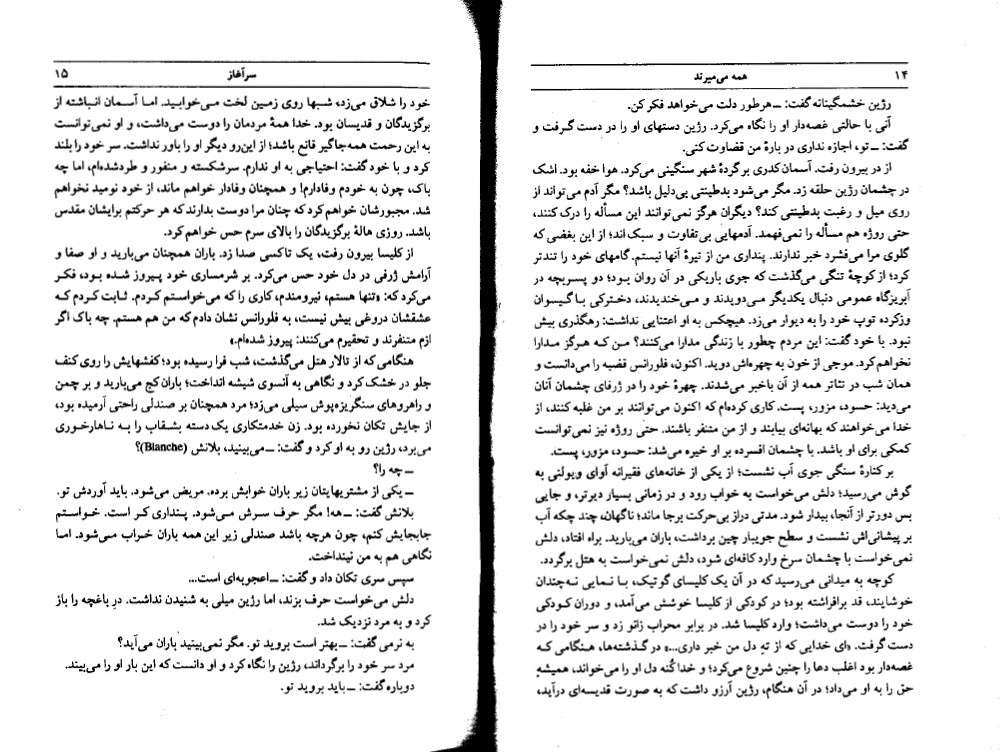 ۱۴
همه می‌میرند
رژین خشمگینانه گفت: ـ هرطور دلت می‌خواهد فکر کن.
آنی با حالتی غصه‌دار او را نگاه می‌کرد. رژین دستهای او را در دست گرفت و
گفت: ـ تو، اجازه نداری در بارهٔ من قضاوت کنی.
از در بیرون رفت. آسمان کدری بر گردهٔ شهر سنگینی می‌کرد. هوا خفه بود. اشک
در چشمان رژین حلقه زد. مگر می‌شود بدطینتی بی‌دلیل باشد؟ مگر آدم می‌تواند از
روی میل و رغبت بدطینتی کند؟ دیگران هرگز نمی‌توانند این مسأله را درک کنند،
حتی روژه هم مسأله را نمی‌فهمد. آدمهایی بی‌تفاوت و سبک‌اند؛ از این بغضی که
گلوی مرا می‌فشرد خبر ندارند. پنداری من از تیرهٔ آنها نیستم. گامهای خود را تندتر
کرد؛ از کوچهٔ تنگی می‌گذشت که جوی باریکی در آن روان بود؛ دو پسربچه در
آبریزگاه عمومی دنبال یکدیگر می‌دویدند و می‌خندیدند، دخترکی با گیسوان
وزکرده توپ خود را به دیوار می‌زد. هیچکس به او اعتنایی نداشت: رهگذری بیش
نبود. با خود گفت: این مردم چطور با زندگی مدارا می‌کنند؟ من که هرگز مدارا
نخواهم‌کرد. موجی از خون به چهره‌اش دوید. اکنون، فلورانس قضیه را می‌دانست و
همان شب در تئاتر همه از آن باخبر می‌شدند. چهرهٔ خود را در ژرفای چشمان آنان
می‌دید: حسود، مزور، پست. کاری کرده‌ام که اکنون می‌توانند بر من غلبه کنند، از
خدا می‌خواهند که بهانه‌ای بیابند و از من متنفر باشند. حتی روژه نیز نمی‌توانست
کمکی برای او باشد. با چشمان افسرده بر او خیره می‌شد: حسود، مزور، پست.
بر کنارهٔ سنگی جوی آب نشست؛ از یکی از خانه‌های فقیرانه آوای ویولنی به
گوش می‌رسید؛ دلش می‌خواست به خواب رود و در زمانی بسیار دیرتر، و جایی
بس دورتر از آنجا، بیدار شود. مدتی دراز بی‌حرکت برجا ماند؛ ناگهان، چند چکه آب
بر پیشانی‌اش نشست و سطح جویبار چین برداشت، باران می‌بارید. براه افتاد، دلش
نمی‌خواست با چشمان سرخ وارد کافه‌ای شود، دلش نمی‌خواست به هتل برگردد.
کوچه به میدانی می‌رسید که در آن یک کلیسای گوتیک، با نمایی نه‌چندان
خوشایند، قد برافراشته بود؛ در کودکی از کلیسا خوشش می‌آمد، و دوران کودکی
خود را دوست می‌داشت؛ وارد کلیسا شد. در برابر محراب زانو زد و سر خود را در
دست گرفت. «ای خدایی که از تهِ دل من خبر داری...» در گذشته‌ها، هنگامی که
غصه‌دار بود اغلب دعا را چنین شروع می‌کرد؛ و خدا کُنه دل او را می‌خواند، همیشه
حق را به او می‌داد؛ در آن هنگام، رژین آرزو داشت که به صورت قدیسه‌ای درآید،
سرآغاز
۱۵
خود را شلاق می‌زد، شبها روی زمین لخت می‌خوابید. اما آسمان انباشته از
برگزیدگان و قدیسان بود. خدا همهٔ مردمان را دوست می‌داشت، و او نمی‌توانست
به این رحمت همه‌جاگیر قانع باشد؛ از این‌رو دیگر او را باور نداشت. سر خود را بلند
کرد و با خود گفت: احتیاجی به او ندارم. سرشکسته و منفور و طردشده‌ام، اما چه
باک، چون به خودم وفادارم! و همچنان وفادار خواهم ماند، از خود نومید نخواهم
شد. مجبورشان خواهم کرد که چنان مرا دوست بدارند که هر حرکتم برایشان مقدس
باشد. روزی هالهٔ برگزیدگان را بالای سرم حس خواهم کرد.
از کلیسا بیرون رفت، یک تاکسی صدا زد. باران همچنان می‌بارید و او صفا و
آرامش ژرفی در دل خود حس می‌کرد. بر شرمساری خود پیروز شده بود، فکر
می‌کرد که: «تنها هستم، نیرومندم، کاری را که می‌خواستم کردم. ثابت کردم که
عشقشان دروغی بیش نیست، به فلورانس نشان دادم که من هم هستم. چه باک اگر
ازم متنفرند و تحقیرم می‌کنند: پیروز شده‌ام.»
هنگامی که از تالار هتل می‌گذشت، شب فرا رسیده بود؛ کفشهایش را روی کنف
جلو در خشک کرد و نگاهی به آنسوی شیشه انداخت؛ باران کج می‌بارید و بر چمن
و راهروهای سنگریزه‌پوش سیلی می‌زد؛ مرد همچنان بر صندلی راحتی آرمیده بود،
از جایش تکان نخورده بود. زن خدمتکاری یک دسته بشقاب را به ناهارخوری
می‌برد، رژین رو به او کرد و گفت: ـ می‌بینید، بلانش (Blanche)؟
ـ چه را؟
ـ یکی از مشتریهایتان زیر باران خوابش برده. مریض می‌شود. باید آوردش تو.
بلانش گفت: ـ هه! مگر حرف سرش می‌شود. پنداری کر است. خواستم
جابجایش کنم، چون هرچه باشد صندلی زیر این همه باران خراب می‌شود. اما
نگاهی هم به من نینداخت.
سپس سری تکان داد و گفت: ـ اعجوبه‌ای است...
دلش می‌خواست حرف بزند، اما رژین میلی به شنیدن نداشت. درِ باغچه را باز
کرد و به مرد نزدیک شد.
به نرمی گفت: ـ بهتر است بروید تو. مگر نمی‌بینید باران می‌آید؟
مرد سر خود را برگرداند، رژین را نگاه کرد و او دانست که این بار او را می‌بیند.
دوباره گفت: ـ باید بروید تو.